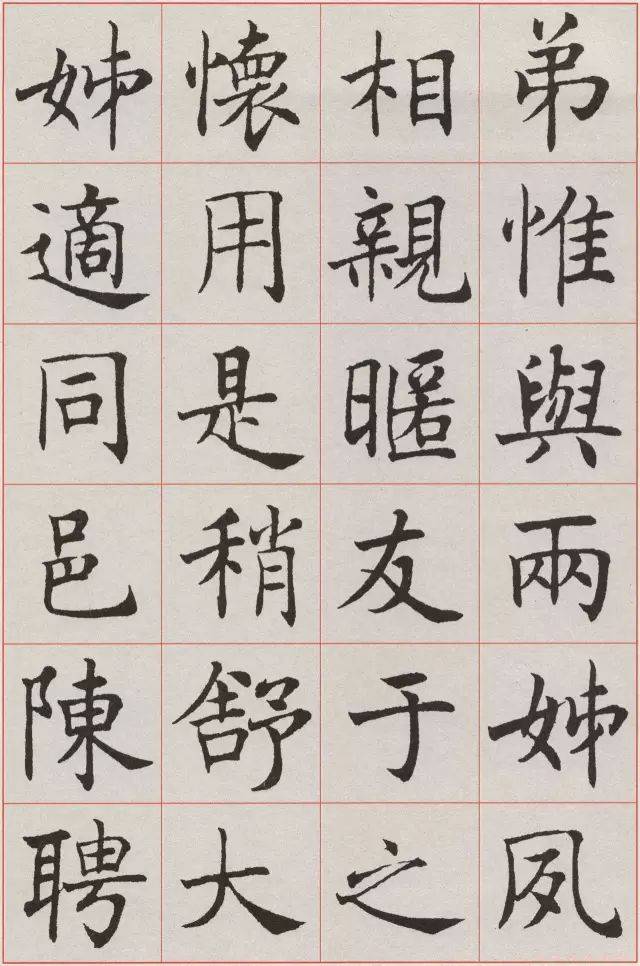 弟惟與兩姊夙
相親暱友于之
懷用是稍舒大
姊適同邑陳聘